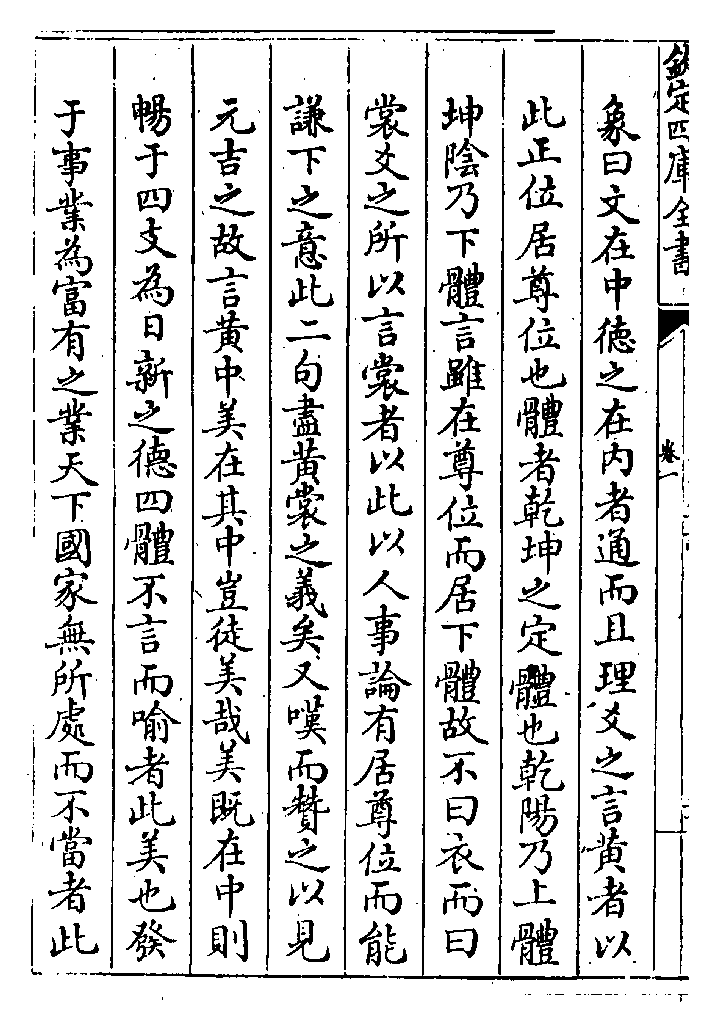 欽定四庫全書
卷一
象曰文在中德之在内者通而且理爻之言黄者以
此正位居尊位也體者乾坤之定體也乾陽乃上體
坤陰乃下體言雖在尊位而居下體故不曰衣而曰
裳爻之所以言裳者以此以人事論有居尊位而能
謙下之意此二句盡黄裳之義矣又嘆而贊之以見
元吉之故言黄中美在其中豈徒美哉美既在中則
暢于四支為日新之德四體不言而喻者此美也發
于事業為富有之業天下國家無所處而不當者此